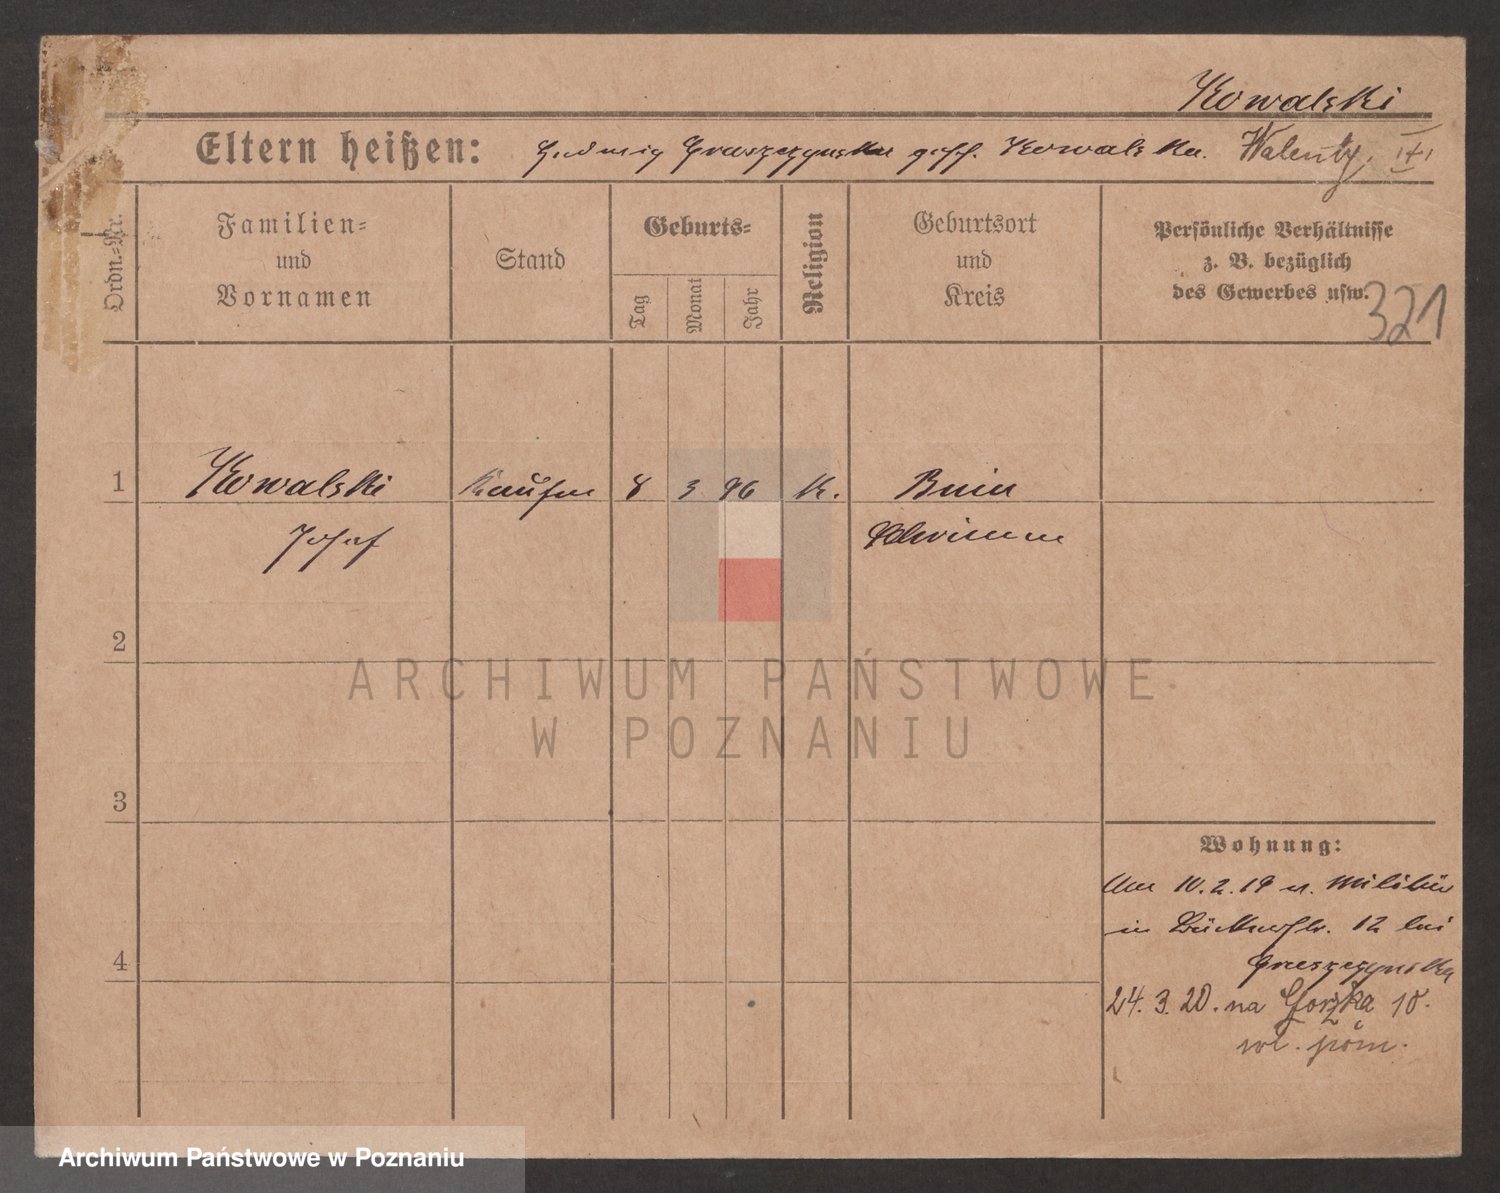 Kowalski
Eltern heißen: Hedwig Graszczynska gesch. Kowalska. Walenty.
Ordn.-Nr.
Familien-
und
Vornamen
Stand
Geburts-
Tag
Monat
Jahr
Religion
Geburtsort
und
Kreis
Persönliche Verhältnisse
z. B. bezüglich
des Gewerbes usw.
321
1 Kowalski Kaufm 8 3 96 K. Bnin
Josef Schrimm
2
ARCHIWUM PAŃSTWOWE
W POZNANIU
3
Wohnung:
10.2.19 v. Militär
in 12 bei
4 Graszczynska
24.3.20. na 10.
wł. pom.
Archiwum Państwowe w Poznaniu